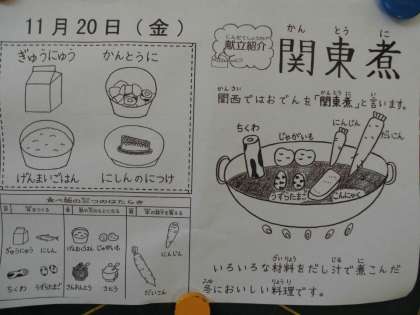 11月20日（金）
ぎゅうにゅう
かんとうに
げんまいごはん
にしんのにつけ
献立紹介
かんとうに
関東煮
かんさい
かんとうに
関西ではおでんを「関東煮」と言います。
ちくわ
じゃがいも
にんじん
だいこん
うずらたまご
こんにゃく
ざいりょう
じる
に
いろいろな材料をだし汁で煮こんだ
ふゆ
りょうり
冬においしい料理です。
食べ物の三つのはたらき
ぎゅうにゅう
にしん
ちくわ
うずらたまご
げんまいごはん
じゃがいも
さんおんとう
さとう
にんじん
だいこん